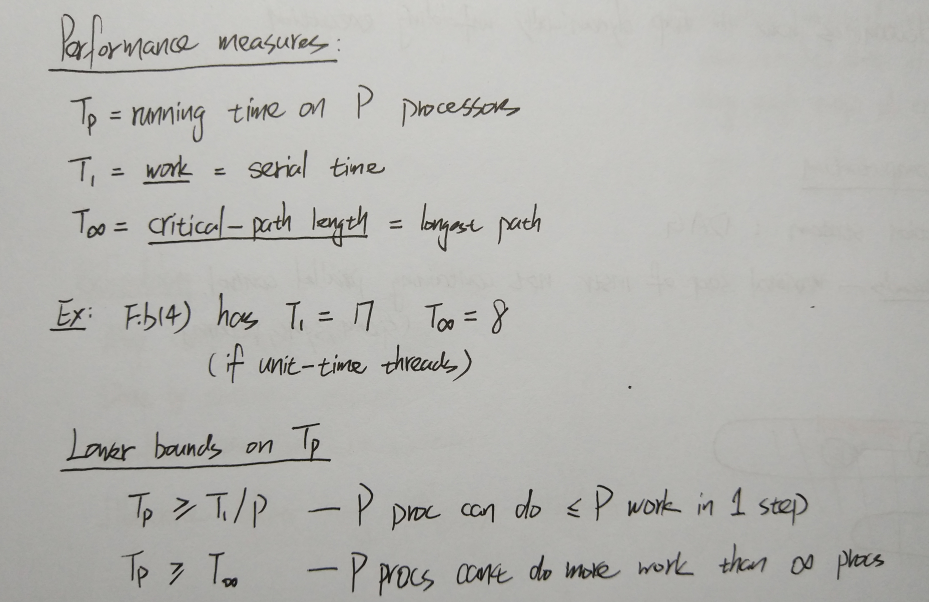 Performance measures:
Tp = running time on P processors
T1 = work = serial time
T∞ = critical-path length = longest path
Ex: Fib(4) has T1 = 17 T∞ = 8
(if unit-time threads)
Lower bounds on Tp
Tp ≥ T1/P — P proc can do ≤ P work in 1 step
Tp ≥ T∞ — P procs can't do more work than ∞ procs